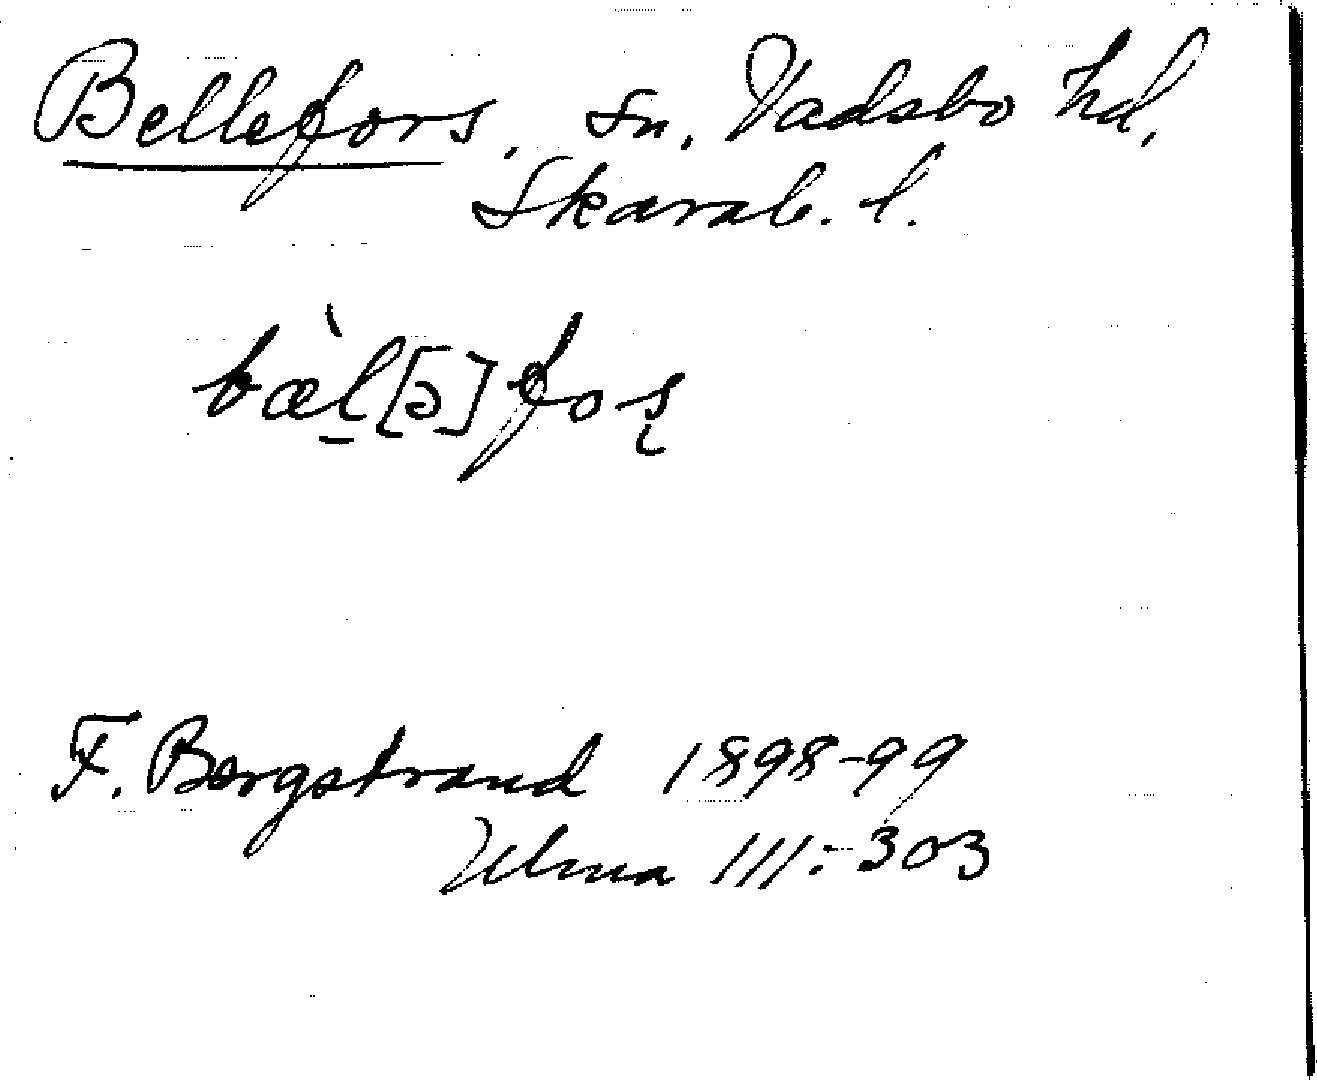 Bellefors, sn, Vadsbo hd,
Skarab. l.
bæ̀l̠[ə]foʂ
F. Bergstrand 1898-99
Ulma 111:303